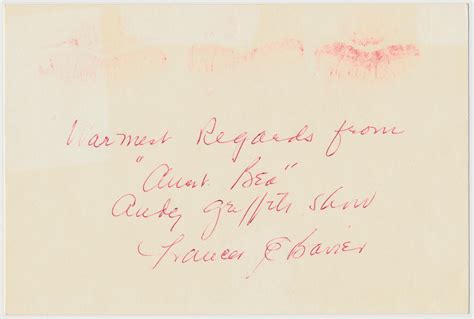 Warmest Regards from
"Aunt Bea"
Andy Griffith Show
Frances E Bavier